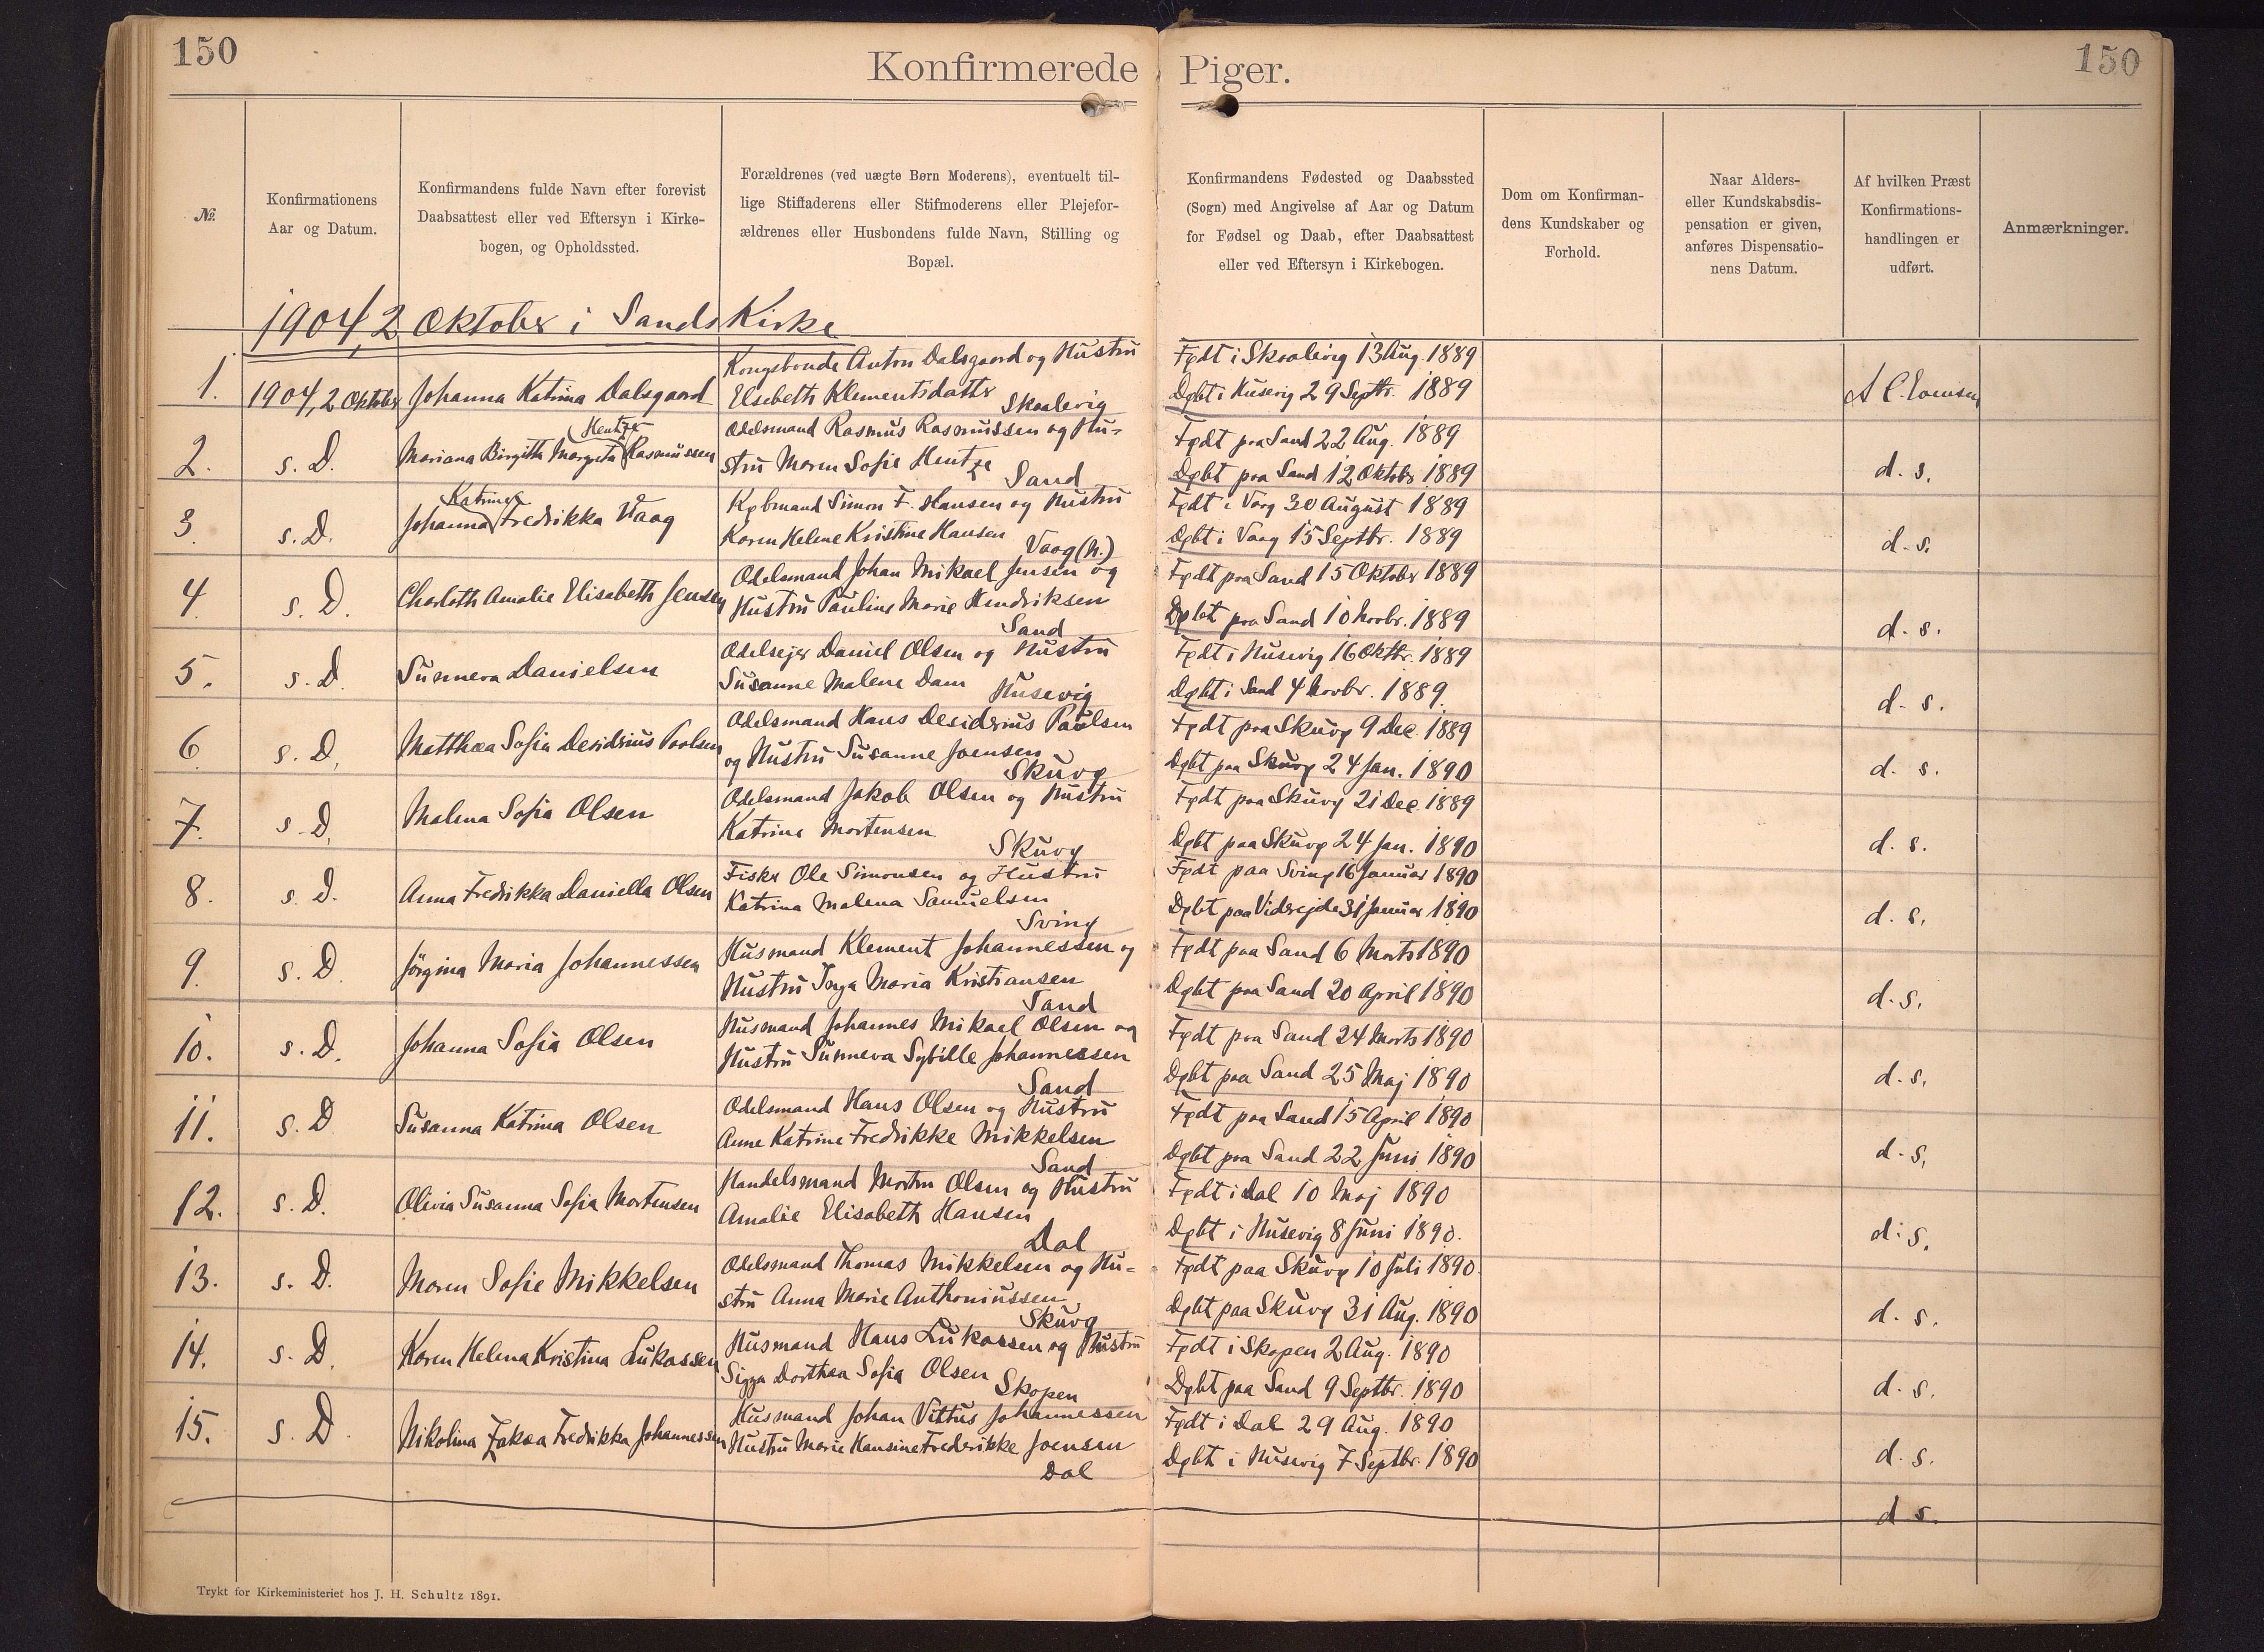 150
Konfirmerede Piger.
150
№.
Konfirmationens
Aar og Datum.
Konfirmandens fulde Navn efter forevist
Daabsattest eller ved Eftersyn i Kirke-
bogen, og Opholdssted.
Forældrenes (ved uægte Børn Moderens), eventuelt til-
lige Stiffaderens eller Stifmoderens eller Plejefor-
ældrenes eller Husbondens fulde Navn, Stilling og
Bopæl.
Konfirmandens Fødested og Daabssted
(Sogn) med Angivelse af Aar og Datum
for Fødsel og Daab, efter Daabsattest
eller ved Eftersyn i Kirkebogen.
Dom om Konfirman-
dens Kundskaber og
Forhold.
Naar Alders-
eller Kundskabsdis-
pensation er given,
anføres Dispensatio-
nens Datum.
Af hvilken Præst
Konfirmations-
handlingen er
udført.
Anmærkninger.
1904, 2 Oktober i Sands Kirke
1.
1904, 2 Oktober
Johanna Katrina Dalsgaard
Kongsbonde Anton Dalsgaard og Hustru
Elsebeth Klementsdatter
Skaalevig
Født i Skaalevig 13 Aug. 1889
Døbt i Husevig 29 Septbr. 1889
2.
s. D.
Hentze
Mariana Birgith Margreta Rasmussen
Odelsmand Rasmus Rasmussen og Hu-
stru Maren Sofie Hentze
Sand
Født paa Sand 22 Aug. 1889
Døbt paa Sand 12 Oktober 1889
d. s.
3.
s. D.
Katrine
Johanna Fredrikka Vaag
Købmand Simon F. Hansen og Hustru
Karen Helene Kristine Hansen
Vaag (N.)
Født i Vaag 30 August 1889
Døbt i Vaag 15 Septbr. 1889
d. s.
4.
s. D.
Charloth Amalie Elisabeth Jensen
Odelsmand Johan Mikael Jensen og
Hustru Pauline Marie Hendriksen
Sand
Født paa Sand 15 Oktober 1889
Døbt paa Sand 10 Novbr. 1889
d. s.
5.
s. D.
Sunneva Danielsen
Odelsejer Daniel Olsen og Hustru
Susanne Malene Dam
Husevig
Født i Husevig 16 Oktbr. 1889
Døbt i Sand 4 Novbr. 1889.
d. s.
6.
s. D.
Matthæa Sofia Desiderius Poulsen
Odelsmand Hans Desiderius Poulsen
og Hustru Susanne Joensen
Skuvø
Født paa Skuvø 9 Dec. 1889
Døbt paa Skuvø 24 Jan. 1890
d. s.
7.
s. D.
Malena Sofia Olsen
Odelsmand Jakob Olsen og Hustru
Katrine Mortensen
Skuvø
Født paa Skuvø 21 Dec. 1889
Døbt paa Skuvø 24 Jan. 1890
d. s.
8.
s. D.
Anna Fredrikka Daniella Olsen
Fisker Ole Simonsen og Hustru
Katrina Malena Samuelsen
Svinø
Født paa Svinø 16 Januar 1890
Døbt paa Viderejde 31 Januar 1890
d. s.
9.
s. D.
Jørgina Maria Johannessen
Husmand Klement Johannessen og
Hustru Inga Maria Kristiansen
Sand
Født paa Sand 6 Marts 1890
Døbt paa Sand 20 April 1890
d. s.
10.
s. D.
Johanna Sofia Olsen
Husmand Johannes Mikael Olsen og
Hustru Sunneva Sybille Johannessen
Sand
Født paa Sand 24 Marts 1890
Døbt paa Sand 25 Maj 1890
d. s.
11.
s. D
Susanna Katrina Olsen
Odelsmand Hans Olsen og Hustru
Anne Katrine Fredrikke Mikkelsen
Sand
Født paa Sand 15 April 1890
Døbt paa Sand 22 Juni 1890
d. s.
12.
s. D.
Olivia Susanna Sofia Mortensen
Handelsmand Morten Olsen og Hustru
Amalie Elisabeth Hansen
Dal
Født i Dal 10 Maj 1890
Døbt i Husevig 8 Juni 1890.
d. s.
13.
s. D.
Maren Sofie Mikkelsen
Odelsmand Thomas Mikkelsen og Hu-
stru Anna Marie Anthoniussen
Skuvø
Født paa Skuvø 10 Juli 1890
Døbt paa Skuvø 31 Aug. 1890
d. s.
14.
s. D.
Karen Helena Kristina Lukassen
Husmand Hans Lukassen og Hustru
Sigga Dorthea Sofia Olsen
Skopen
Født i Skopen 2 Aug. 1890
Døbt paa Sand 9 Septbr. 1890
d. s.
15.
s. D
Nikolina Zakæa Fredrikka Johannessen
Husmand Johan Vittus Johannessen
Hustru Marie Hansine Frederikke Joensen
Dal
Født i Dal 29 Aug. 1890
Døbt i Husevig 7 Septbr. 1890
d. s.
d s.
Trykt for Kirkeministeriet hos J. H. Schultz 1891.